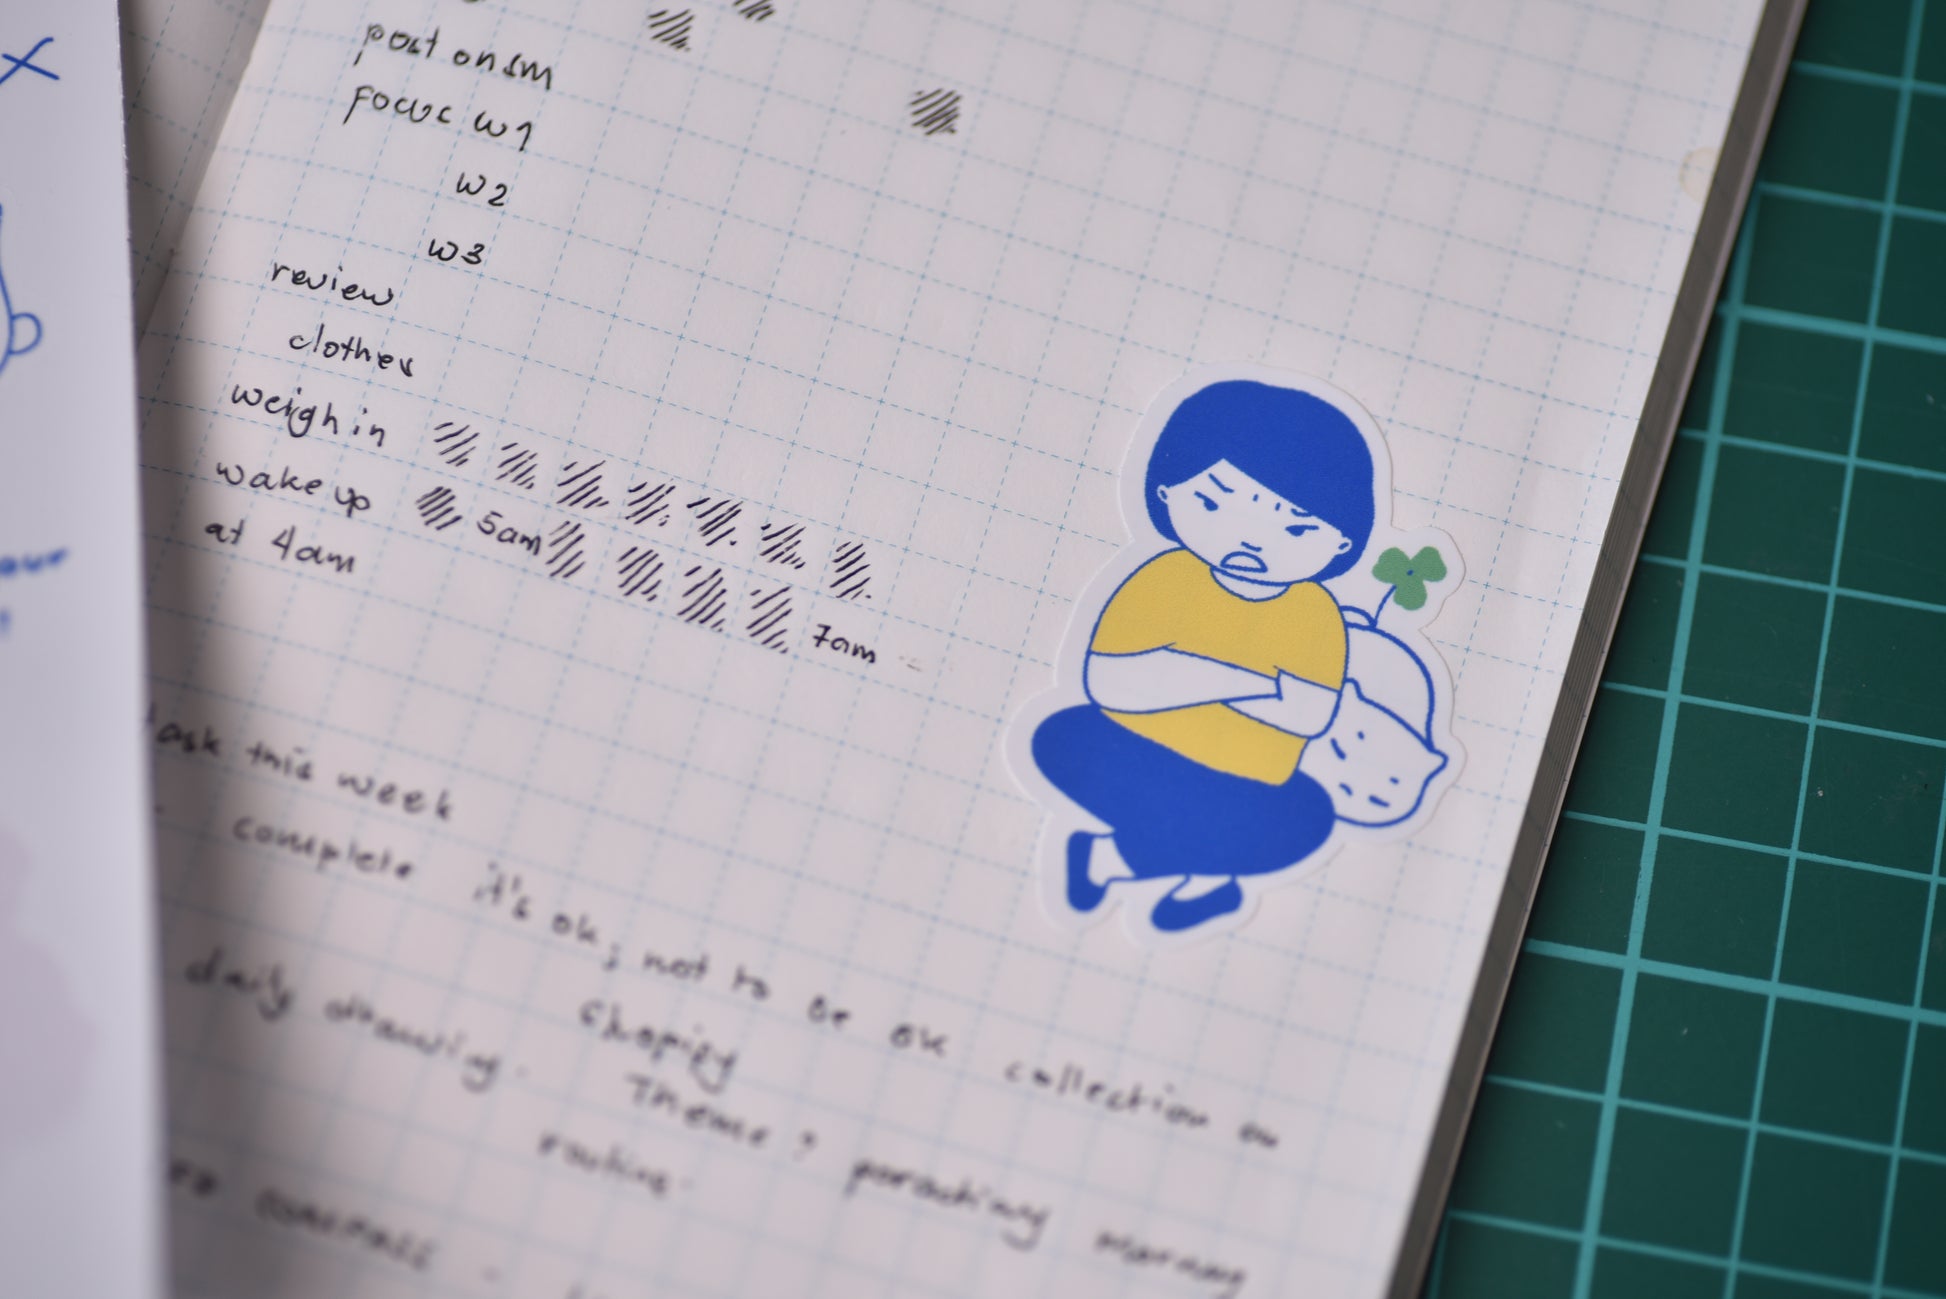 post on sm
focus w1
w2
w3
review
clothes
weigh in
wake up 5am 7am
at 4am
task this week
complete it's ok, not to be ok collection on
Shopify
daily drawing. Theme? parenting morning
routine